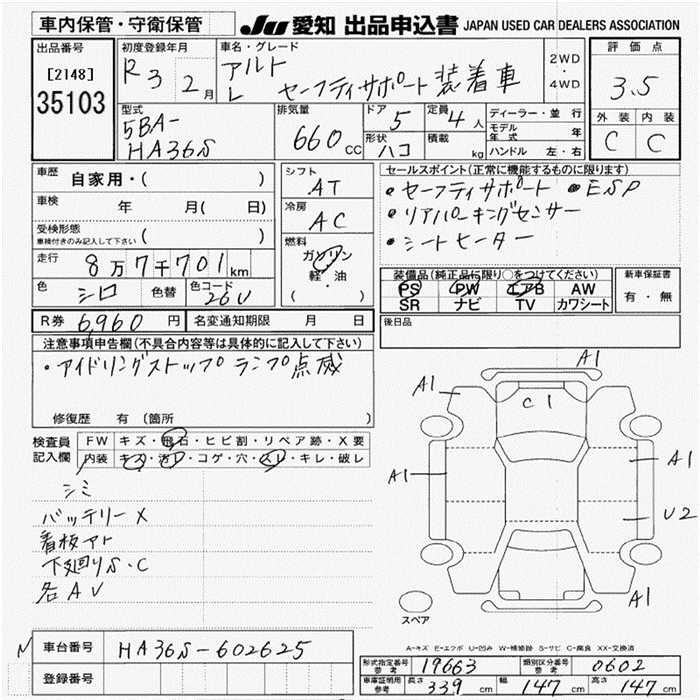 車内保管・守衛保管 JU 愛知 出品申込書 JAPAN USED CAR DEALERS ASSOCIATION
出品番号 [2148] 35103
初度登録年月 R3 2月
車名・グレード アルト L セーフティサポート装着車
2WD・4WD
評価点 3.5
外装 C 内装 C
型式 5BA-HA36S
排気量 660cc
ドア 5
形状 ハコ
定員 4人
積載 kg
ディーラー・並行
モデル年式 年
ハンドル 左・右
車歴 自家用・( )
車検 年 月( 日)
受検形態 車検付きのみ記入して下さい ( )
走行 8万7千701km
色 シロ 色替 色コード 26U
シフト AT
冷房 AC
燃料 ガソリン 軽・油 ( ・ )
セールスポイント(正常に機能するものに限ります)
・セーフティサポート ・ESP
・リアパーキングセンサー
・シートヒーター
装備品(純正品に限り○をつけてください) 新車保証書
PS PW エアB AW
SR ナビ TV カワシート
有・無
R券 6,960円 名変通知期限 月 日
後日品
注意事項申告欄(不具合内容等は具体的に記入して下さい)
・アイドリングストップランプ点滅
修復歴 有 (箇所 )
検査員記入欄 FW キズ・飛石・ヒビ割・リペア跡・X要
内装 キズ・汚レ・コゲ・穴・スレ・キレ・破レ
シミ
バッテリーX
看板アト
下廻りS・C
各AU
A1
A1 C1
A1 A1
U2
A1 A1
スペア
A-キズ E-エクボ U-凹み W-補修跡 S-サビ C-腐食 XX-交換済
N 車台番号 HA36S-602625
登録番号
形式指定番号 参考 19663 類別区分番号 参考 0602
車庫証明用 参考 長さ 339cm 幅 147cm 高さ 147cm